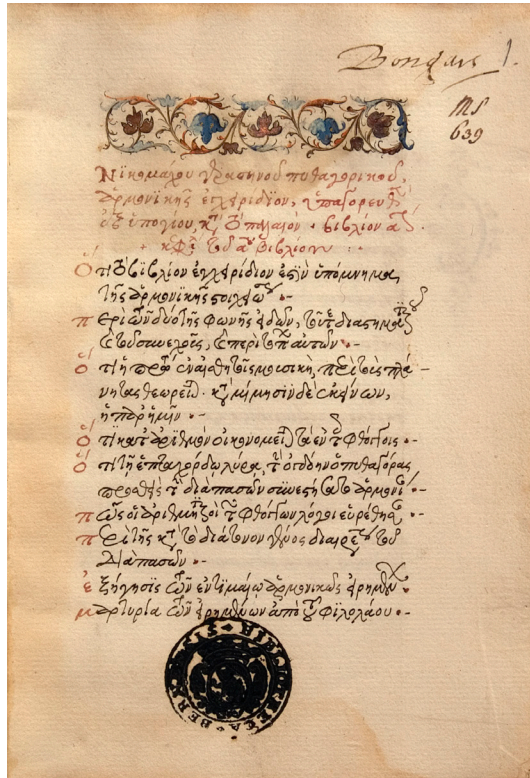 Bongars 1.
MS
639
Νικομάχου γερασηνοῦ πυθαγορικοῦ,
ἁρμονικῆς ἐγχειρίδιον, ὑπαγορευθὲν
ἐξ ὑπογίου κατὰ τὸ παλαιόν · βιβλίον αον.
κεφάλαια τοῦ α βιβλίου :
Ὅτι τὸ βιβλίον ἐγχειρίδιον ἐστὶν ὑπόμνημα
τῆς ἁρμονικῆς στοιχειώσεως ·
περὶ τῶν δύο τῆς φωνῆς εἰδῶν, τοῦ τε διαστηματικοῦ
καὶ τοῦ συνεχοῦς, καὶ περὶ τῶν τόπων αὐτῶν ·
Ὅτι ἡ πρώτη ἐν αἰσθητοῖς μουσικὴ, περὶ τοὺς πλά
νητας θεωρεῖται · κατὰ μίμησιν δὲ ἐκείνων,
ἡ παρ' ἡμῖν ·
Ὅτι κατ' ἀριθμὸν οἰκονομεῖται τὰ ἐν τοῖς φθόγγοις ·
Ὅτι τῇ ἑπταχόρδω λύρα, τὴν ὀγδόην ὁ πυθαγόρας
προσθεὶς τὴν διαπασῶν συνεστήσατο ἁρμονίαν ·
πῶς οἱ ἀριθμητικοὶ τῶν φθόγγων λόγοι εὑρέθησαν ·
περὶ τῆς κατὰ τὸ διάτονον γένος διαιρέσεως τοῦ
διαπασῶν ·
ἐξήγησις τῶν ἐν τιμαίω ἁρμονικῶς εἰρημένων ·
μαρτυρία τῶν εἰρημένων ἀπὸ τοῦ φιλολάου ·